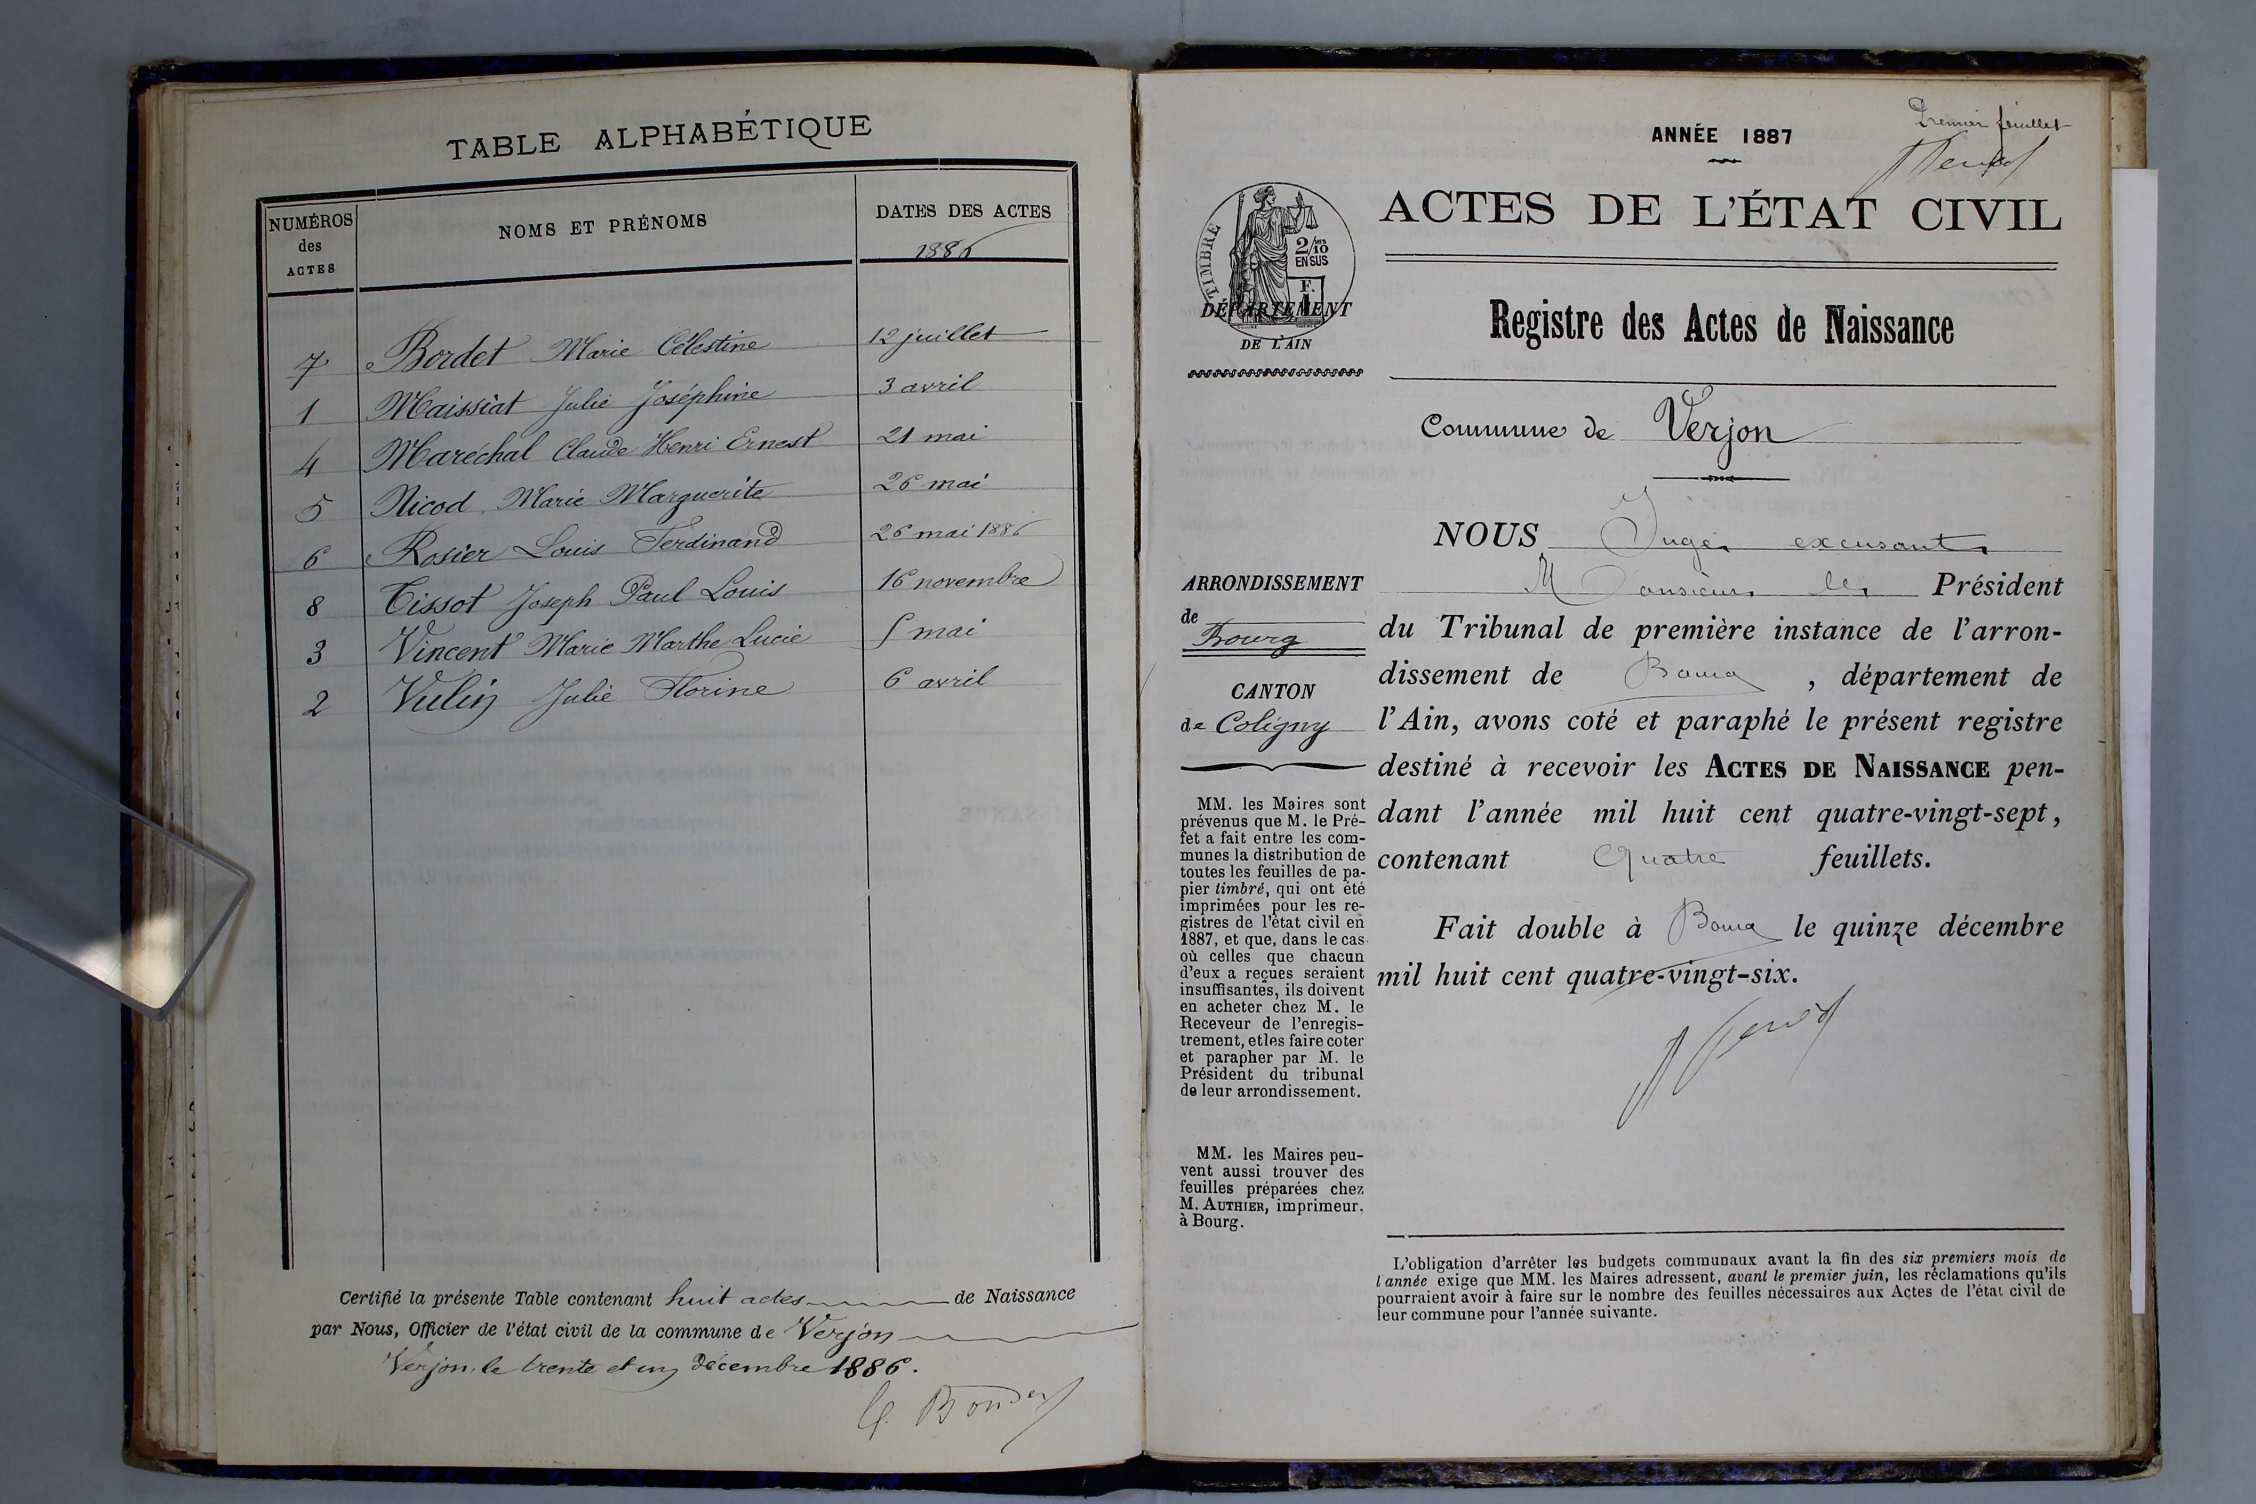 TABLE ALPHABÉTIQUE
NUMÉROS
des
ACTES
NOMS ET PRÉNOMS
DATES DES ACTES
1886
7 Bordet Marie Célestine 12 juillet
1 Maissiat Julie Joséphine 3 avril
4 Maréchal Claude Henri Ernest 21 mai
5 Nicod Marie Marguerite 26 mai
6 Rosier Louis Ferdinand 26 mai 1886
8 Tissot Joseph Paul Louis 16 novembre
3 Vincent Marie Marthe Lucie 5 mai
2 Vulin Julie Florine 6 avril
Certifié la présente Table contenant huit actes de Naissance
par Nous, Officier de l'état civil de la commune de Verjon
Verjon, le trente et un décembre 1886.
Premier feuillet
ANNÉE 1887
ACTES DE L'ÉTAT CIVIL
TIMBRE
2/10
EN SUS
F.
1
DÉPARTEMENT
DE L'AIN
Registre des Actes de Naissance
Commune de Verjon
ARRONDISSEMENT
de
Bourg
CANTON
de Coligny
MM. les Maires sont
prévenus que M. le Pré-
fet a fait entre les com-
munes la distribution de
toutes les feuilles de pa-
pier timbré, qui ont été
imprimées pour les re-
gistres de l'état civil en
1887, et que, dans le cas
où celles que chacun
d'eux a reçues seraient
insuffisantes, ils doivent
en acheter chez M. le
Receveur de l'enregis-
trement, et les faire coter
et parapher par M. le
Président du tribunal
de leur arrondissement.
MM. les Maires peu-
vent aussi trouver des
feuilles préparées chez
M. AUTHIER, imprimeur,
à Bourg.
NOUS Juge
Monsieur le Président
du Tribunal de première instance de l'arron-
dissement de Bourg , département de
l'Ain, avons coté et paraphé le présent registre
destiné à recevoir les ACTES DE NAISSANCE pen-
dant l'année mil huit cent quatre-vingt-sept,
contenant Quatre feuillets.
Fait double à Bourg le quinze décembre
mil huit cent quatre-vingt-six.
L'obligation d'arrêter les budgets communaux avant la fin des six premiers mois de
l'année exige que MM. les Maires adressent, avant le premier juin, les réclamations qu'ils
pourraient avoir à faire sur le nombre des feuilles nécessaires aux Actes de l'état civil de
leur commune pour l'année suivante.